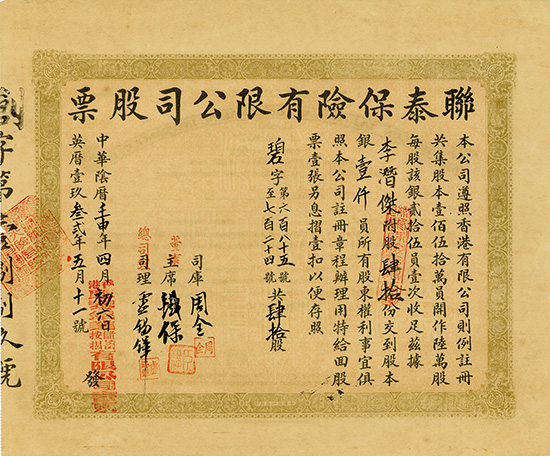 聯泰保險有限公司股票
本公司遵照香港有限公司則例註冊
共集股本壹佰伍拾萬員開作陸萬股
每股該銀貳拾伍員壹次收足茲據
李潛傑附股肆拾份交到股本
銀壹仟員所有股東權利事宜俱
照本公司註冊章程辦理用特給回股
票壹張另息摺壹扣以便存照
碧字第六百八十五號
至七百二十四號共肆拾股
司庫
主席
總司理
中華陰曆壬申年四月初六日
英曆壹玖叁弍年五月十一號
發